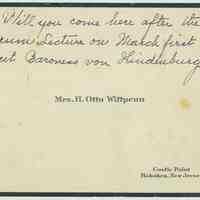 Will you come here after the
Lecture on March first
Baroness von Hindenburg
Mrs. H. Otto Wittpenn
Castle Point
Hoboken, New Jersey